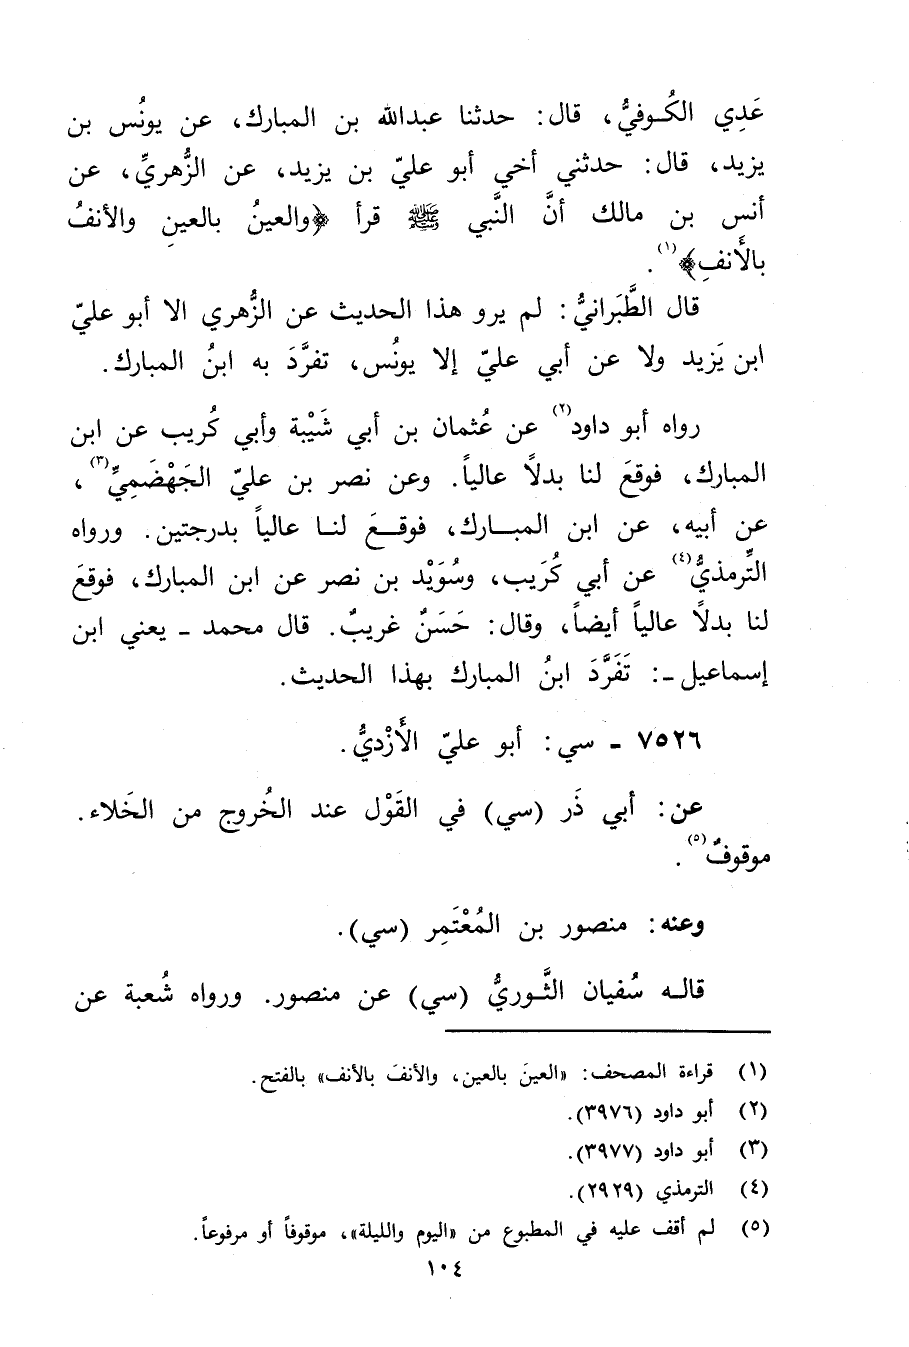 عَدِي الكُوفيُّ، قال: حدثنا عبدالله بن المبارك، عن يونُس بن
يزيد، قال: حدثني أخي أبو عليّ بن يزيد، عن الزُّهريِّ، عن
أنس بن مالك أنَّ النَّبي ﷺ قرأ ﴿والعينُ بالعينِ والأنفُ
بالأَنفِ﴾(١).
قال الطَّبَرانيُّ: لم يرو هذا الحديث عن الزُّهري الا أبو عليّ
ابن يَزيد ولا عن أبي عليّ إلا يونُس، تفرَّدَ به ابنُ المبارك.
رواه أبو داود(٢) عن عُثمان بن أبي شَيْبة وأبي كُريب عن ابن
المبارك، فوقعَ لنا بدلاً عالياً. وعن نصر بن عليّ الجَهْضَمِيِّ(٣)،
عن أبيه، عن ابن المبارك، فوقعَ لنا عالياً بدرجتين. ورواه
التِّرمذيُّ(٤) عن أبي كُرَيب، وسُوَيْد بن نصر عن ابن المبارك، فوقعَ
لنا بدلاً عالياً أيضاً، وقال: حَسَنٌ غريبٌ. قال محمد ـ يعني ابن
إسماعيل ـ: تَفَرَّدَ ابنُ المبارك بهذا الحديث.
٧٥٢٦ ـ سي: أبو عليّ الأَزْديُّ.
عن: أبي ذَر (سي) في القَوْل عند الخُروج من الخَلاء.
موقوفٌ(٥).
وعنه: منصور بن المُعْتَمِر (سي).
قاله سُفيان الثَّوريُّ (سي) عن منصور. ورواه شُعبة عن
(١) قراءة المصحف: «العينَ بالعين، والأنفَ بالأنف» بالفتح.
(٢) أبو داود (٣٩٧٦).
(٣) أبو داود (٣٩٧٧).
(٤) الترمذي (٢٩٢٩).
(٥) لم أقف عليه في المطبوع من «اليوم والليلة»، موقوفاً أو مرفوعاً.
١٠٤